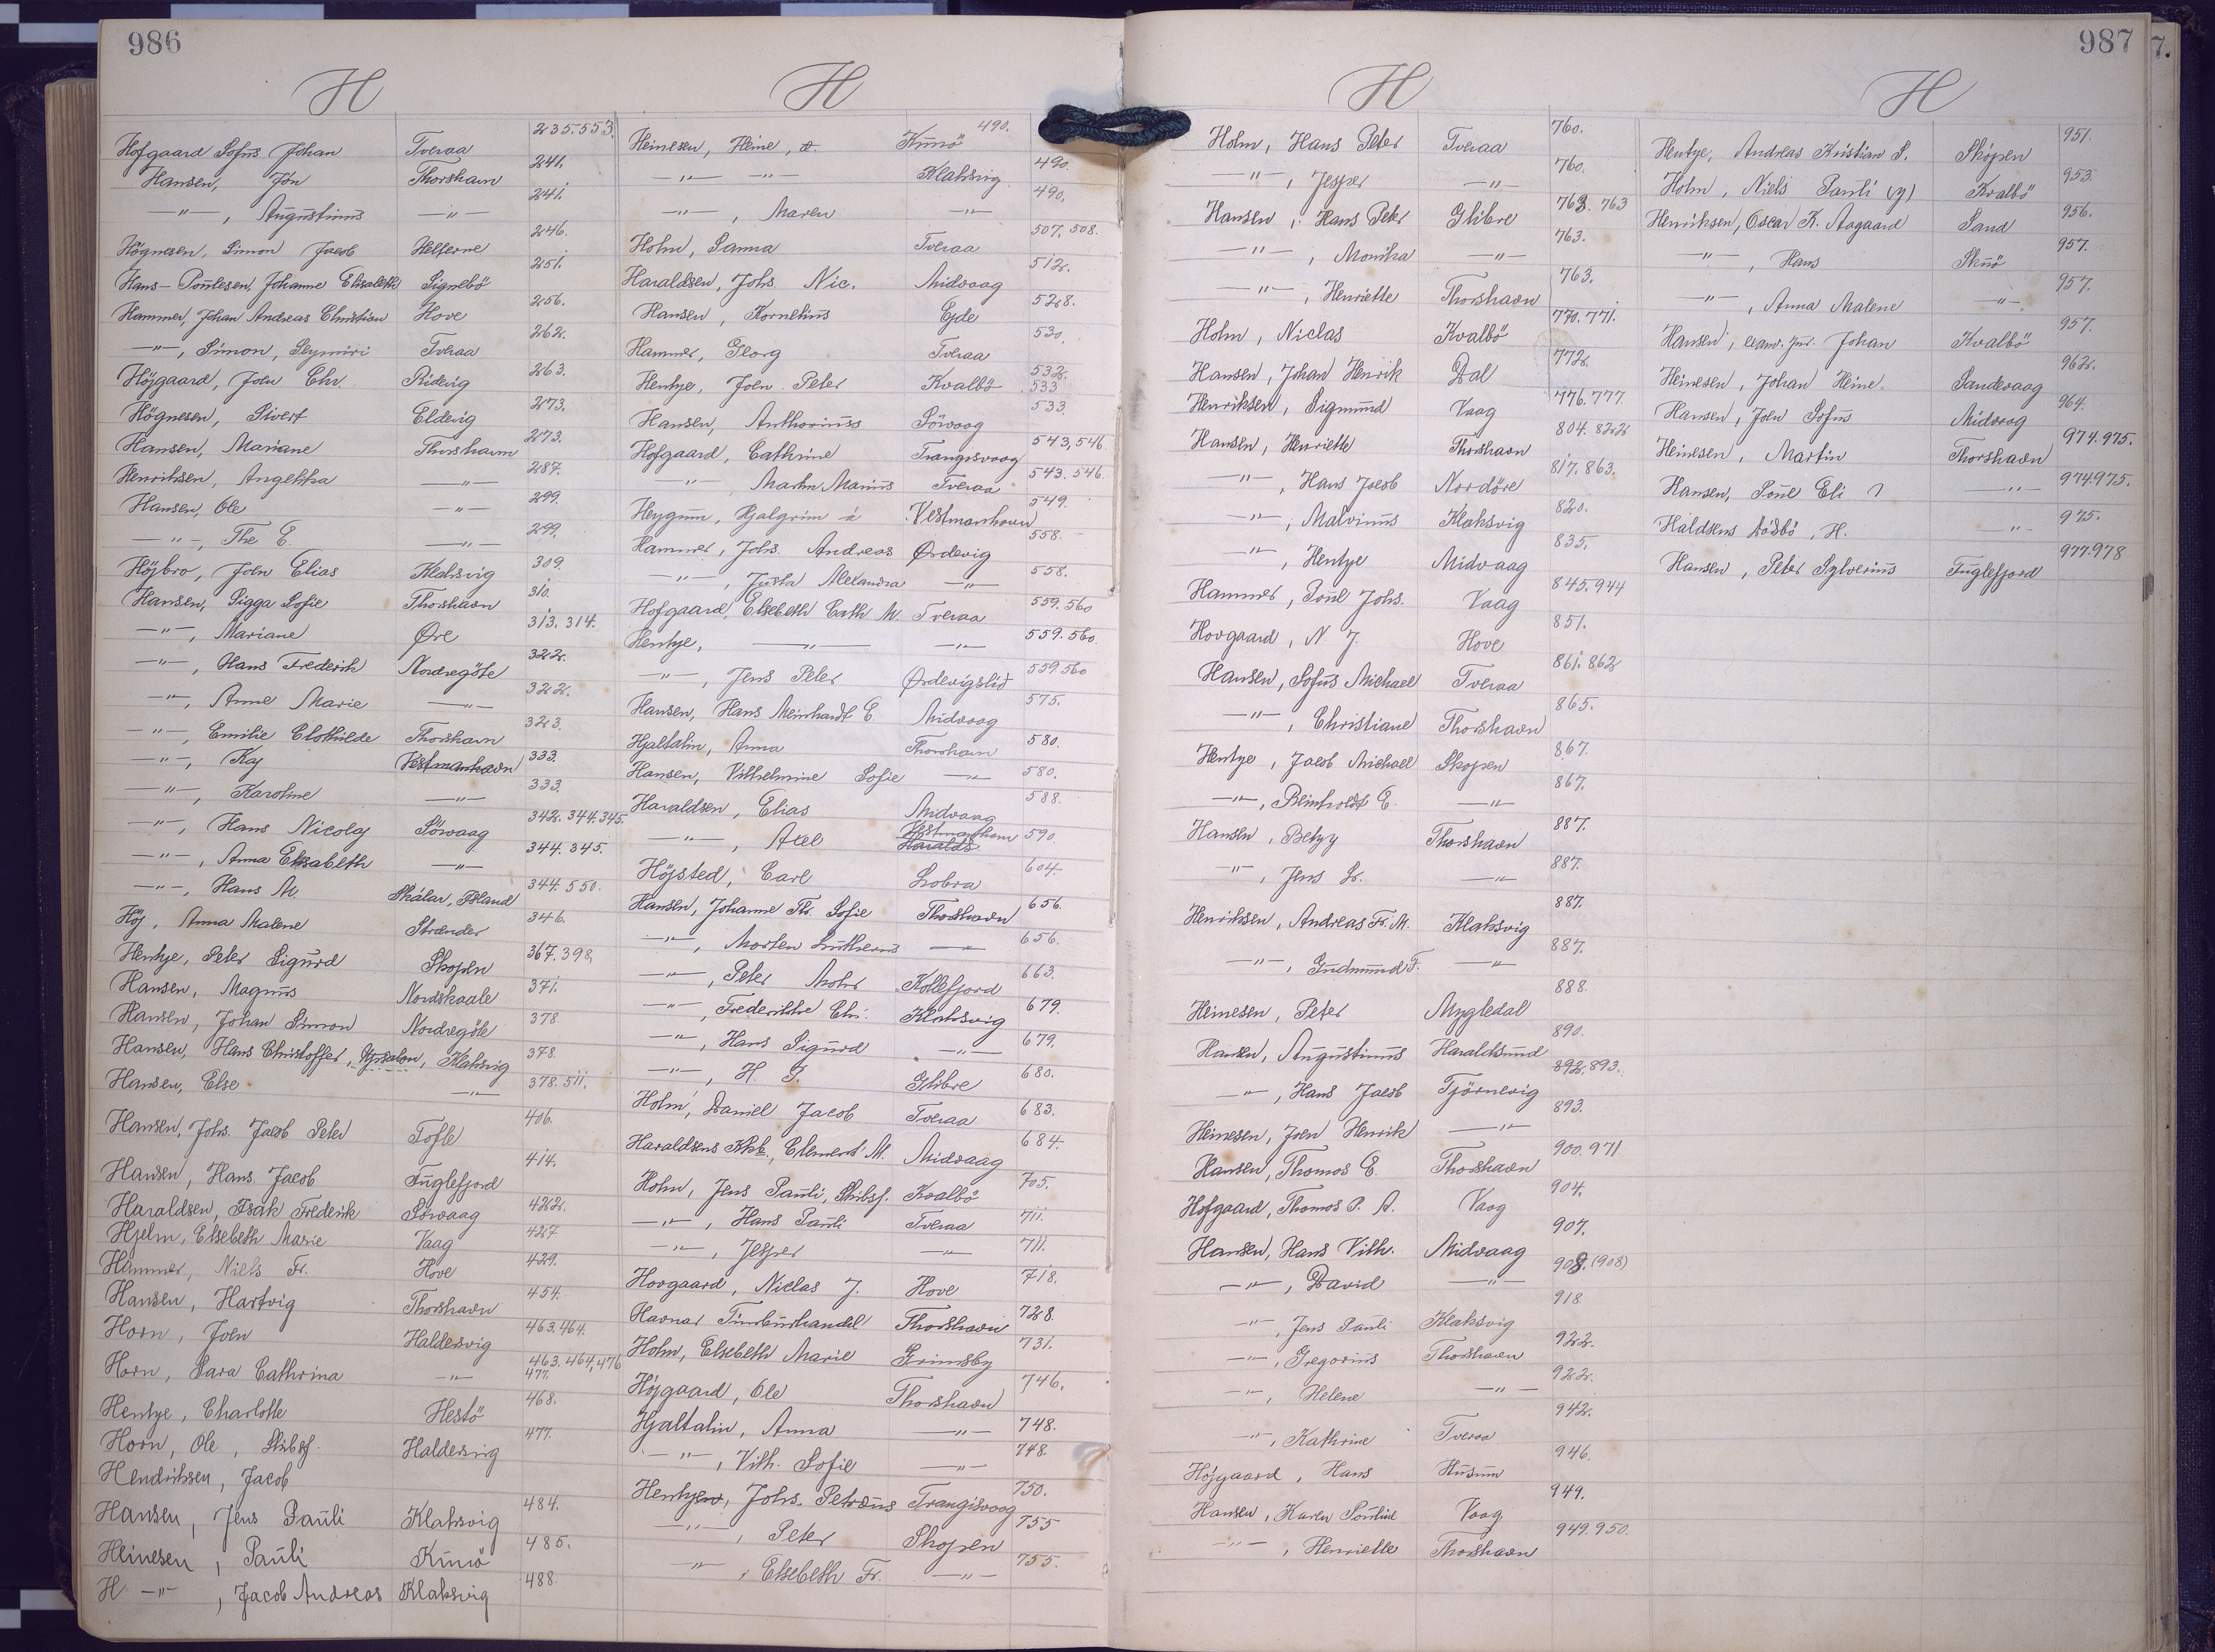 986
H
Hofgaard Sofus Johan Tveraa 235.553.
Hansen, Jón Thorshavn 241.
—"—, Augustinus —"— 241.
Högnesen, Simon Jacob Helferne 246.
Hans-Poulesen, Johanne Elisabeth Signebö 251.
Hammer, Johan Andreas Christian Hove 256.
—"—, Simon, Seymiri Tveraa 262.
Höjgaard, Joen Chr. Ridevig 263.
Högnesen, Sivert Eldevig 273.
Hansen, Mariane Thorshavn 273.
Henriksen, Angelikka —"— 287.
Hansen, Ole —"— 299.
—"—, The E. —"— 299.
Höjbro, Joen Elias Klaksvig 309.
Hansen, Sigga Sofie Thorshavn 310.
—"—, Mariane Øre 313. 314.
—"—, Hans Frederik Nordregöte 322.
—"—, Anne Marie —"— 322.
—"—, Emilie Clothilde Thorshavn 323.
—"—, Kaj Vestmanhavn 333.
—"—, Karoline —"— 333.
—"—, Hans Nicolaj Sörvaag 342. 344. 345.
—"—, Anna Elisabeth —"— 344. 345.
—"—, Hans M. Skálar, Island 344. 550.
Höj, Anna Malene Strænder 346.
Hentze, Peter Sigurd Skopen 367. 398.
Hansen, Magnus Nordskaale 371.
Hansen, Johan Simon Nordregöte 378.
Hansen, Hans Christoffer, Klaksvig 378.
Hansen, Else —"— 378. 511.
Hansen, Johs. Jacob Peter Tofte 406.
Hansen, Hans Jacob Fuglefjord 414.
Haraldsen, Isak Frederik Sörvaag 422.
Hjelm, Elsebeth Marie Vaag 427
Hammer, Niels Fr. Hove 429.
Hansen, Hartvig Thorshavn 454.
Horn, Joen Haldersvig 463.464.
Horn, Sara Cathrina —"— 463. 464, 476 477.
Hentze, Charlotte Hestö 468.
Horn, Ole, Skibsf. Haldersvig 477.
Hendriksen, Jacob
Hansen, Jens Pauli Klaksvig 484.
Heinesen, Pauli Kunö 485.
H —"—, Jacob Andreas Klaksvig 488.
H
Heinesen, Heine, Kunö 490.
—"— —"— Klaksvig 490.
—"—, Maren —"— 490.
Holm, Sanna Tveraa 507. 508.
Haraldsen, Johs. Nic. Midvaag 512.
Hansen, Kornelius Ejde 528.
Hammer, Georg Tveraa 530.
Hentze, Joen Peter Kvalbö 532. 533
Hansen, Anthorius Sörvaag 533.
Hofgaard, Cathrine Trangisvaag 543, 546
—"— Martin Marius Tveraa 543. 546
Heygum, Hjalgrim á Vestmanhavn 549.
Hammer, Johs. Andreas Ørdevig 558.
—"—, Justa Alexandra —"— 558.
Hofgaard, Elsebeth Cath M. Tveraa 559. 560
Hentze, —"— —"— 559. 560.
—"—, Jens Peter Ørdevigslid 559 560
Hansen, Hans Meinhardt E. Midvaag 575.
Hjaltalin, Anna Thorshavn 580.
Hansen, Vilhelmine Sofie —"— 580.
Haraldsen, Elias Midvaag 588.
—"—, Axel Vestmanhavn 590.
Höjsted, Carl Lobra 604
Hansen, Johanne Th. Sofie Thorshavn 656.
—"—, Morten Lutherus —"— 656.
—"—, Peter Mohr Kollefjord 663.
—"—, Frederikke Chr. Klaksvig 679.
—"—, Hans Sigurd —"— 679.
—"—, H. J. Glibre 680.
Holm, Daniel Jacob Tveraa 683.
Haraldsens Kkb., Clement M. Midvaag 684.
Holm, Jens Pauli, Skibsf. Kvalbö 705.
—"—, Hans Pauli Tveraa 711.
—"—, Jesper —"— 711.
Hovgaard, Niclas J. Hove 718.
Havnar Timburhandel Thorshavn 728.
Holm, Elsebeth Marie Grimsby 731.
Höjgaard, Ole Thorshavn 746.
Hjaltalin, Anna —"— 748.
—"—, Vilh. Sofie —"— 748.
Hentzen, Johs. Petræus Trangisvaag 750.
—"—, Peter Skopen 755
—"—, Elsebeth Fr. —"— 755.
987
H
Holm, Hans Peter Tveraa 760.
—"—, Jesper —"— 760.
Hansen, Hans Peter Glibre 763. 763
—"—, Monika —"— 763.
—"—, Henriette Thorshavn 763.
Holm, Niclas Kvalbö 770. 771.
Hansen, Johan Henrik Dal 772.
Henriksen, Sigmund Vaag 776. 777.
Hansen, Henriette Thorshavn 804. 822
—"—, Hans Jacob Nordöre 817. 863.
—"—, Malvinus Klaksvig 820.
—"—, Hentze Midvaag 835.
Hammer, Poul Johs. Vaag 845. 944
Hovgaard, N J. Hove 851.
Hansen, Sofus Michael Tveraa 861. 862
—"—, Christiane Thorshavn 865.
Hentze, Jacob Michael Skopen 867.
—"—, Reinholdt E. —"— 867.
Hansen, Betzy Thorshavn 887.
—"—, Jens Sr. —"— 887.
Henriksen, Andreas Fr. M. Klaksvig 887.
—"—, Gudmund F. —"— 887.
Heinesen, Peter Mygledal 888.
Hansen, Augustinus Haraldsund 890.
—"—, Hans Jacob Tjörnevig 892. 893.
Heinesen, Joen Henrik —"— 893.
Hansen, Thomas E. Thorshavn 900. 971.
Hofgaard, Thomas P. A. Vaag 904.
Hansen, Hans Vilh. Midvaag 907.
—"—, David —"— 908. (908)
—"—, Jens Pauli Klaksvig 918.
—"—, Gregorius Thorshavn 922.
—"—, Helene —"— 922.
—"—, Kathrine Tveraa 942.
Höjgaard, Hans Husum 946.
Hansen, Karen Pouline Vaag 949.
—"—, Henriette Thorshavn 949. 950.
H
Hentze, Andreas Kristian S. Skópen 951.
Holm, Niels Pauli (y) Kvalbö 953.
Henriksen, Oscar K. Aagaard Sand 956.
—"—, Hans Skuö 957.
—"—, Anna Malene —"— 957.
Hansen, Johan Kvalbö 957.
Heinesen, Johan Heine Sandevaag 962.
Hansen, Joen Sofus Midvaag 964.
Heinesen, Martin Thorshavn 974. 975.
Hansen, Poul Eli —"— 974. 975.
Haldsens , H. —"— 975.
Hansen, Peter Sylverius Fuglefjord 977.978
7.